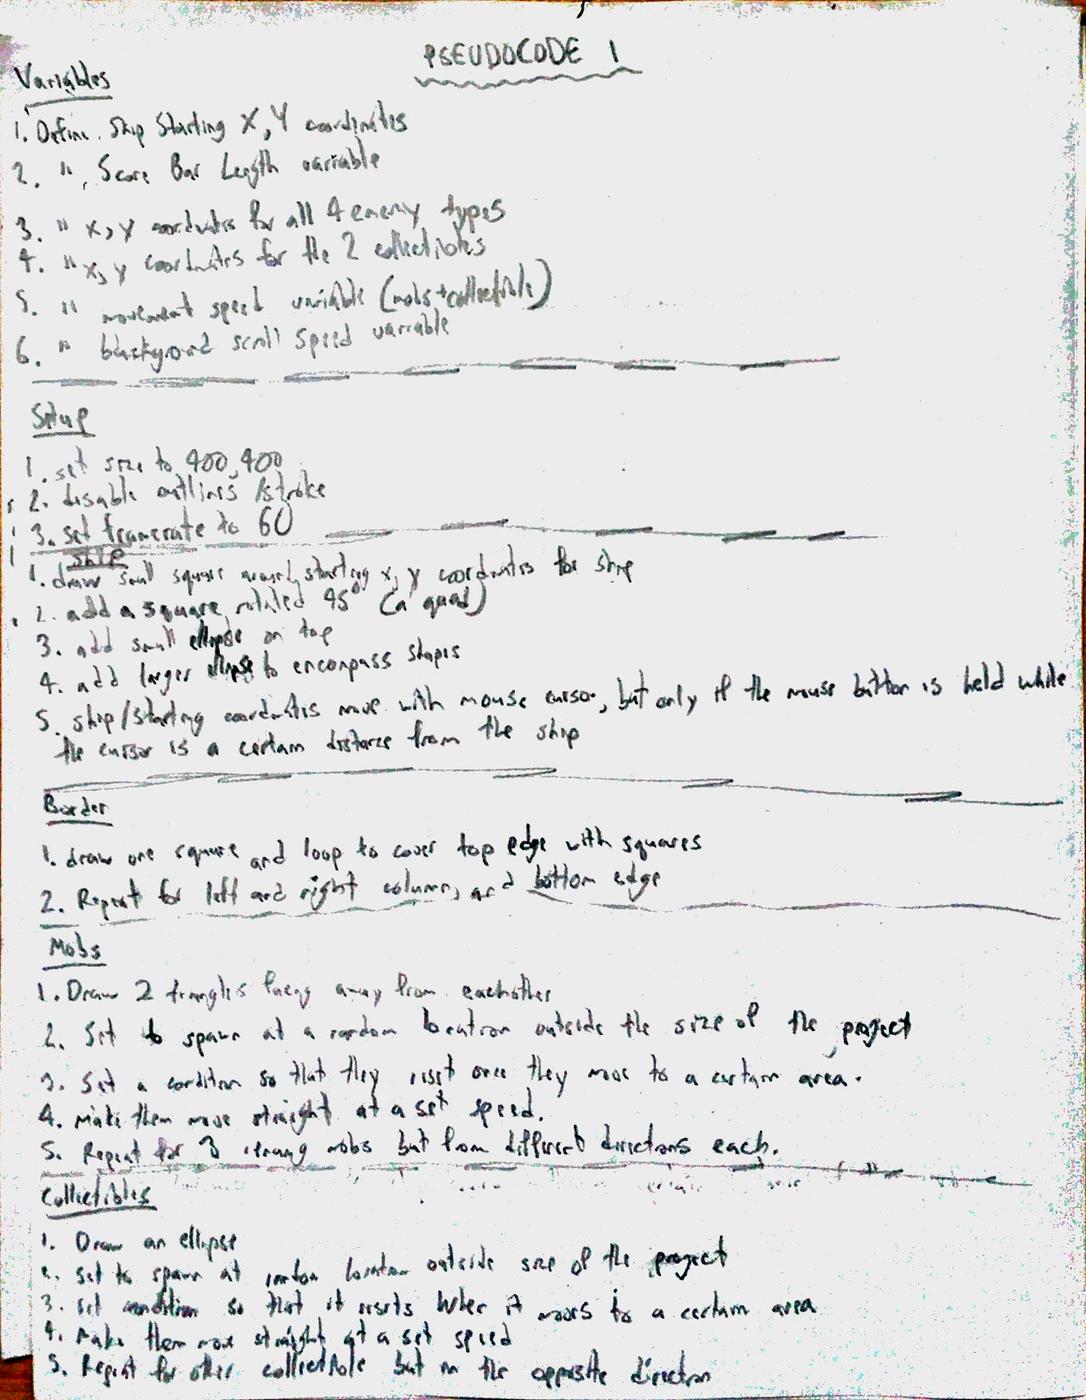 PSEUDOCODE 1
Variables
1. Define Ship Starting X, Y coordinates
2. ", Score Bar Length variable
3. " x, y coordinates for all 4 enemy types
4. " x, y coordinates for the 2 collectibles
5. " movement speed variable (mobs + collectible)
6. " background scroll speed variable
Setup
1. set size to 400, 400
2. disable outlines /stroke
3. set framerate to 60
Ship
1. draw small square around starting x, y coordinates for ship
2. add a square rotated 45° (a quad)
3. add small ellipse on top
4. add larger ellipse to encompass shapes
5. ship/starting coordinates move with mouse cursor, but only if the mouse button is held while
the cursor is a certain distance from the ship
Border
1. draw one square and loop to cover top edge with squares
2. Repeat for left and right column, and bottom edge
Mobs
1. Draw 2 triangles facing away from eachother
2. Set to spawn at a random location outside the size of the project
3. Set a condition so that they reset once they move to a certain area.
4. Make them move straight at a set speed.
5. Repeat for 3 mobs but from different directions each.
Collectibles
1. Draw an ellipse
2. set to spawn at random location outside size of the project
3. set condition so that it resets when it moves to a certain area
4. Make them move straight at a set speed
5. Repeat for other collectible but in the opposite direction